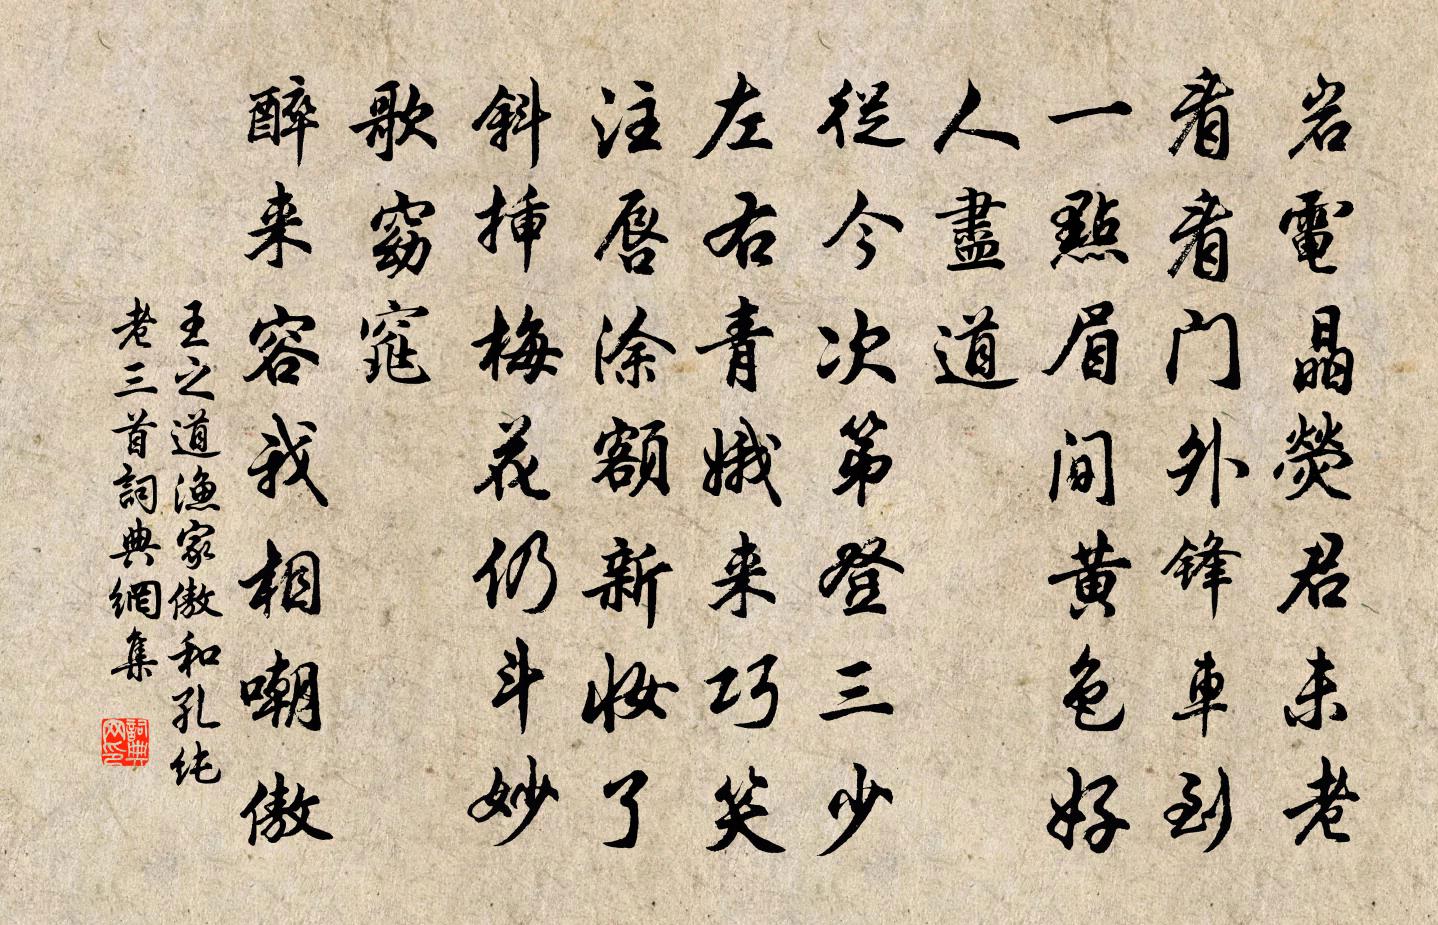 岩電晶熒君未老
看看門外鋒車到
一點眉間黃色好
人盡道
從今次第登三少
左右青娥来巧笑
注唇涂額新妝了
斜插梅花仍斗妙
歌窈窕
醉来容我相嘲傲
王之道漁家傲和孔純
老三首詞典網集
詞典
网印